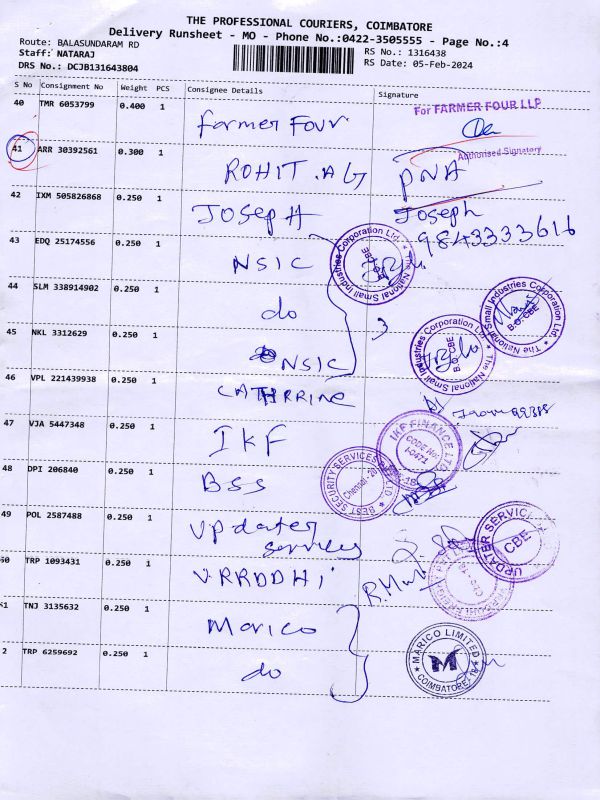 THE PROFESSIONAL COURIERS, COIMBATORE
Delivery Runsheet - MO - Phone No.:0422-3505555 - Page No.:4
Route: BALASUNDARAM RD
Staff: NATARAJ
DRS No.: DCJB131643804
RS No.: 1316438
RS Date: 05-Feb-2024
S No Consignment No Weight PCS Consignee Details Signature
40 TMR 6053799 0.400 1 Farmer Four For FARMER FOUR LLP
Authorised Signatory
41 ARR 30392561 0.300 1 ROHIT.AG PNA
42 IXM 505826868 0.250 1 JOSEPH Joseph
9843333616
43 EDQ 25174556 0.250 1 NSIC
The National Small Industries Corporation Ltd. * B.O. CBE *
44 SLM 338914902 0.250 1 do 3
The National Small Industries Corporation Ltd. * B.O. CBE *
45 NKL 3312629 0.250 1 NSIC
The National Small Industries Corporation Ltd. * B.O. CBE *
46 VPL 221439938 0.250 1 CATHRRINE
47 VJA 5447348 0.250 1 IKF
IKF FINANCE LTD CODE No:
48 DPI 206840 0.250 1 BSS
BEST SECURITY SERVICES
Chennai
49 POL 2587488 0.250 1 Updater
services
UPDATER SERVIC
CBE
50 TRP 1093431 0.250 1 VRRDDHI
51 TNJ 3135632 0.250 1 Marico
2 TRP 6259692 0.250 1 do
MARICO LIMITED
M
COIMBATORE